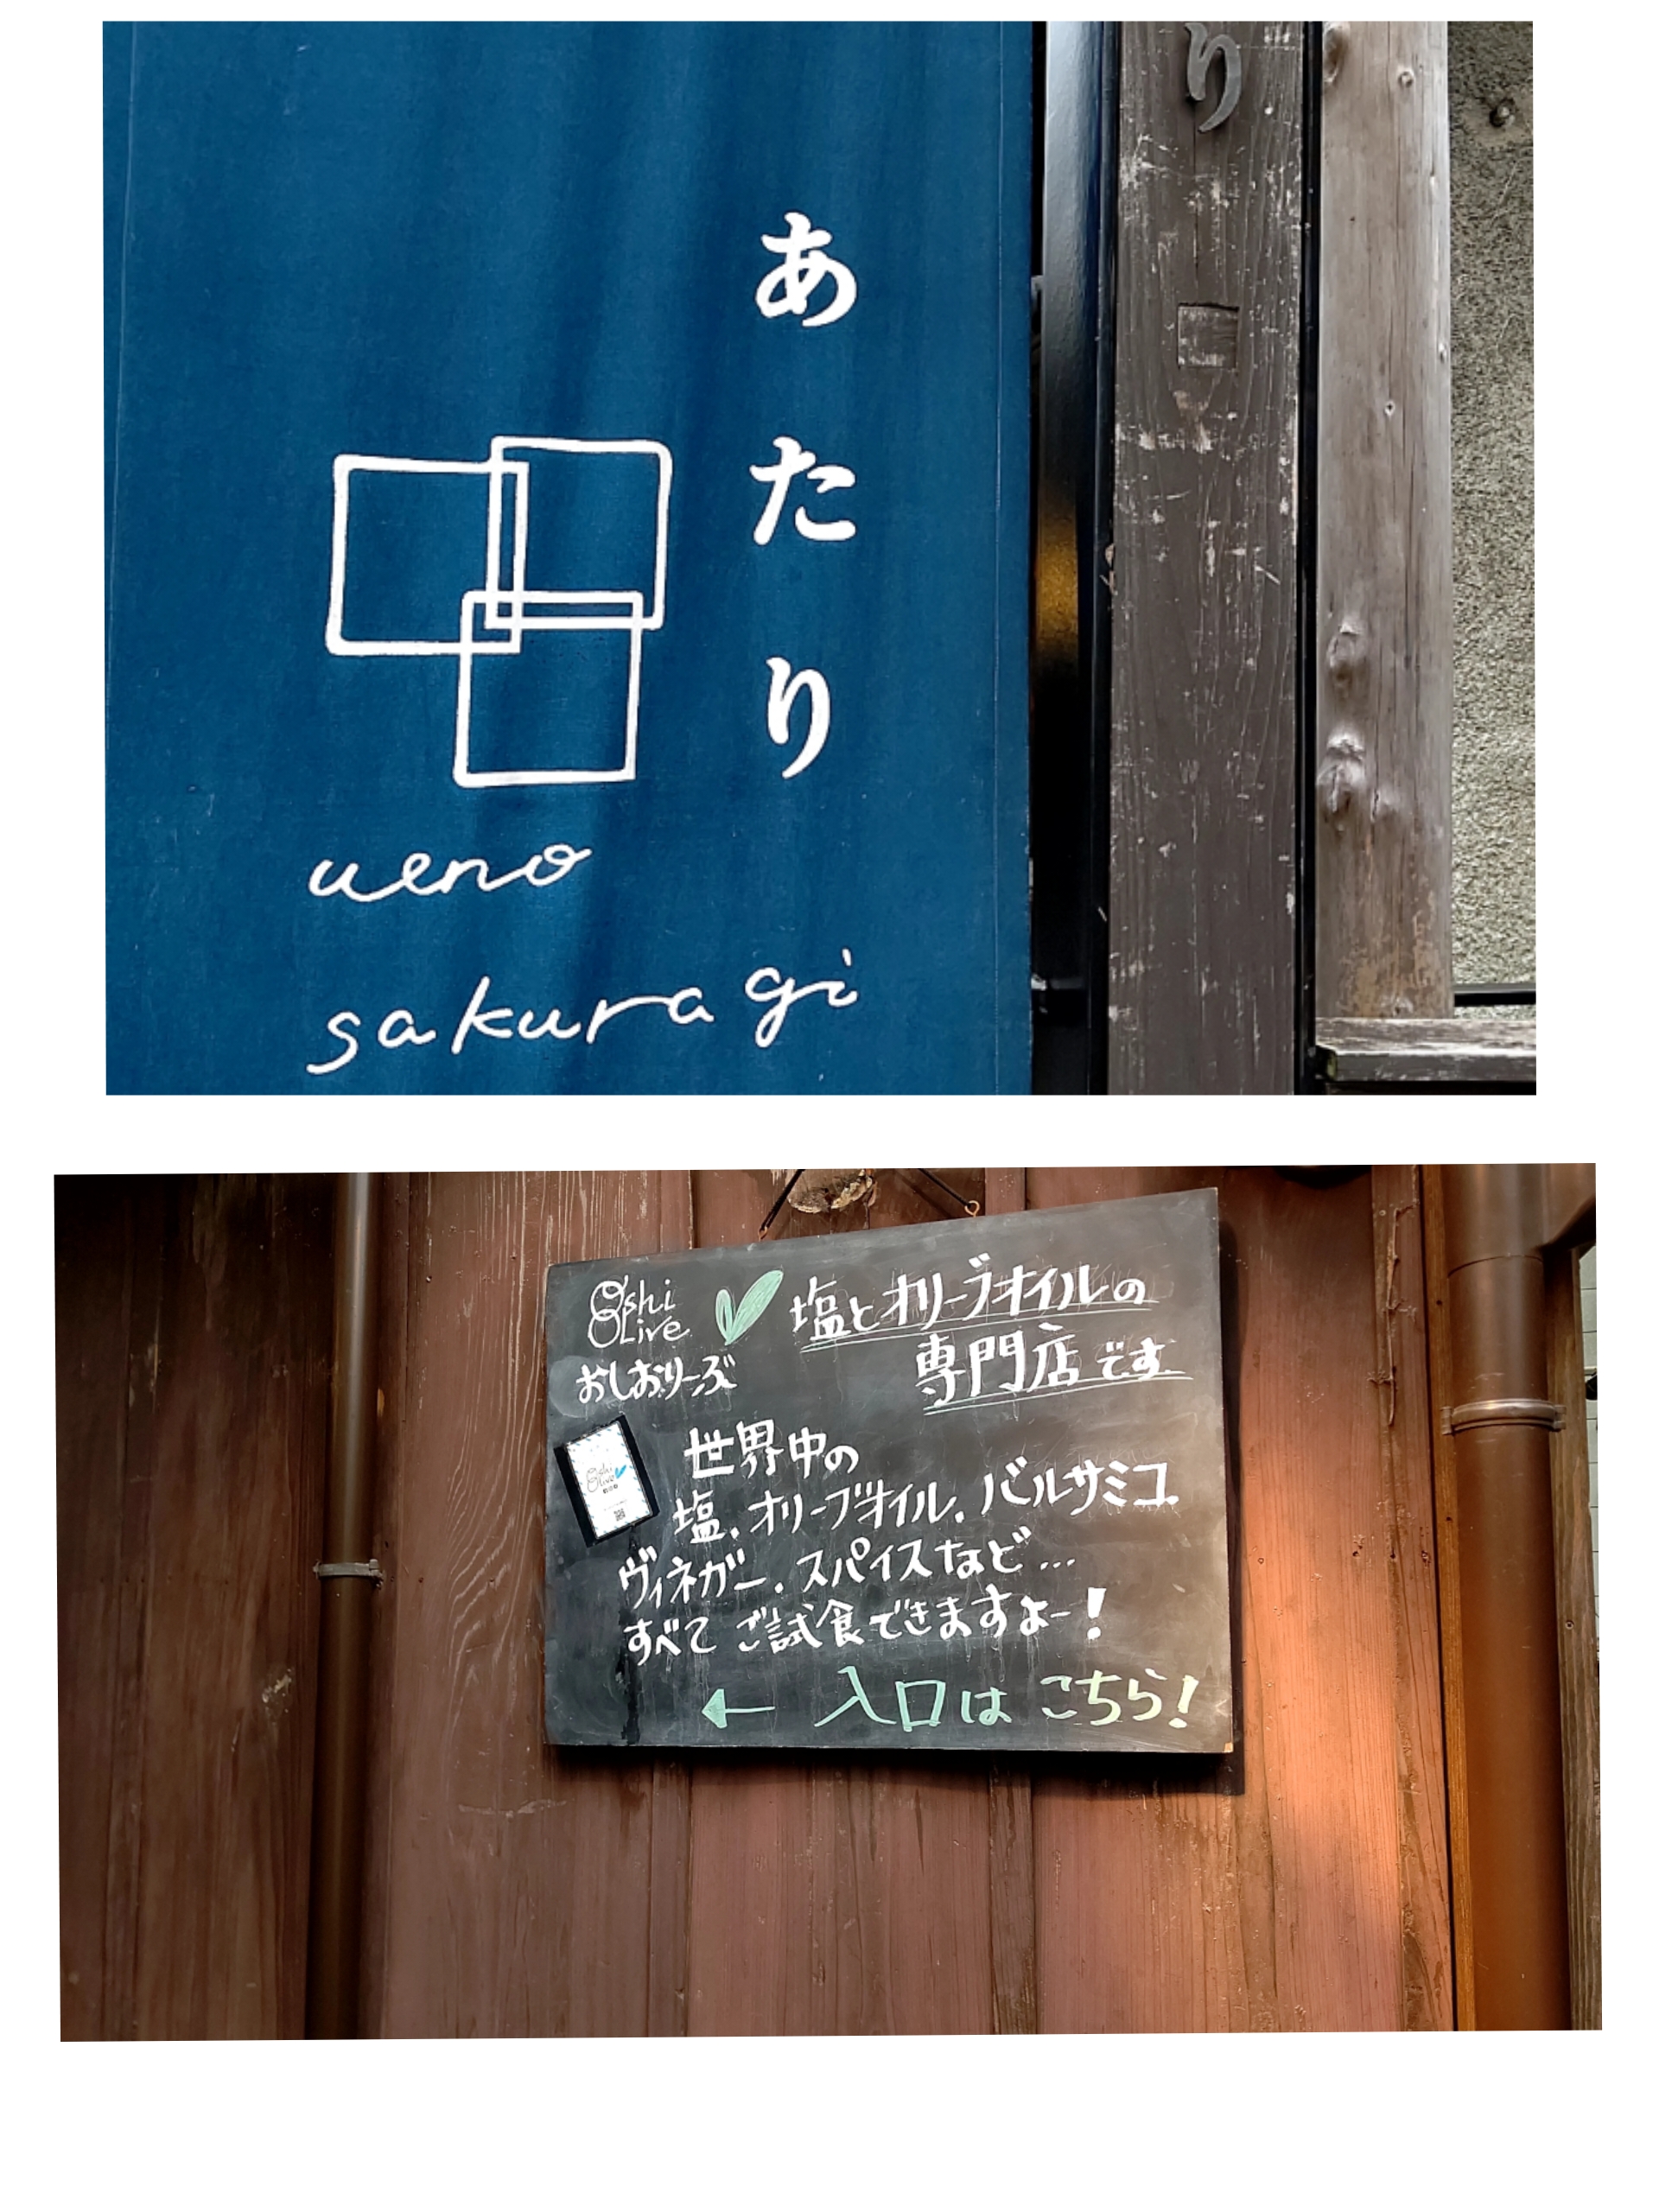 り
あたり
ueno
sakuragi
Oshi
OLive
おしおりーぶ
塩とオリーブオイルの
専門店です
世界中の
塩、オリーブオイル、バルサミコ
ヴィネガー、スパイスなど…
すべてご試食できますよー！
← 入口はこちら！
Oshi
Olive